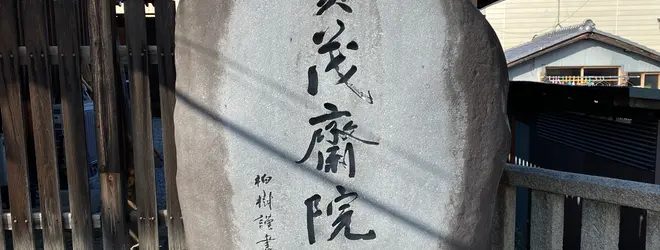 茂齋院
柏樹謹書